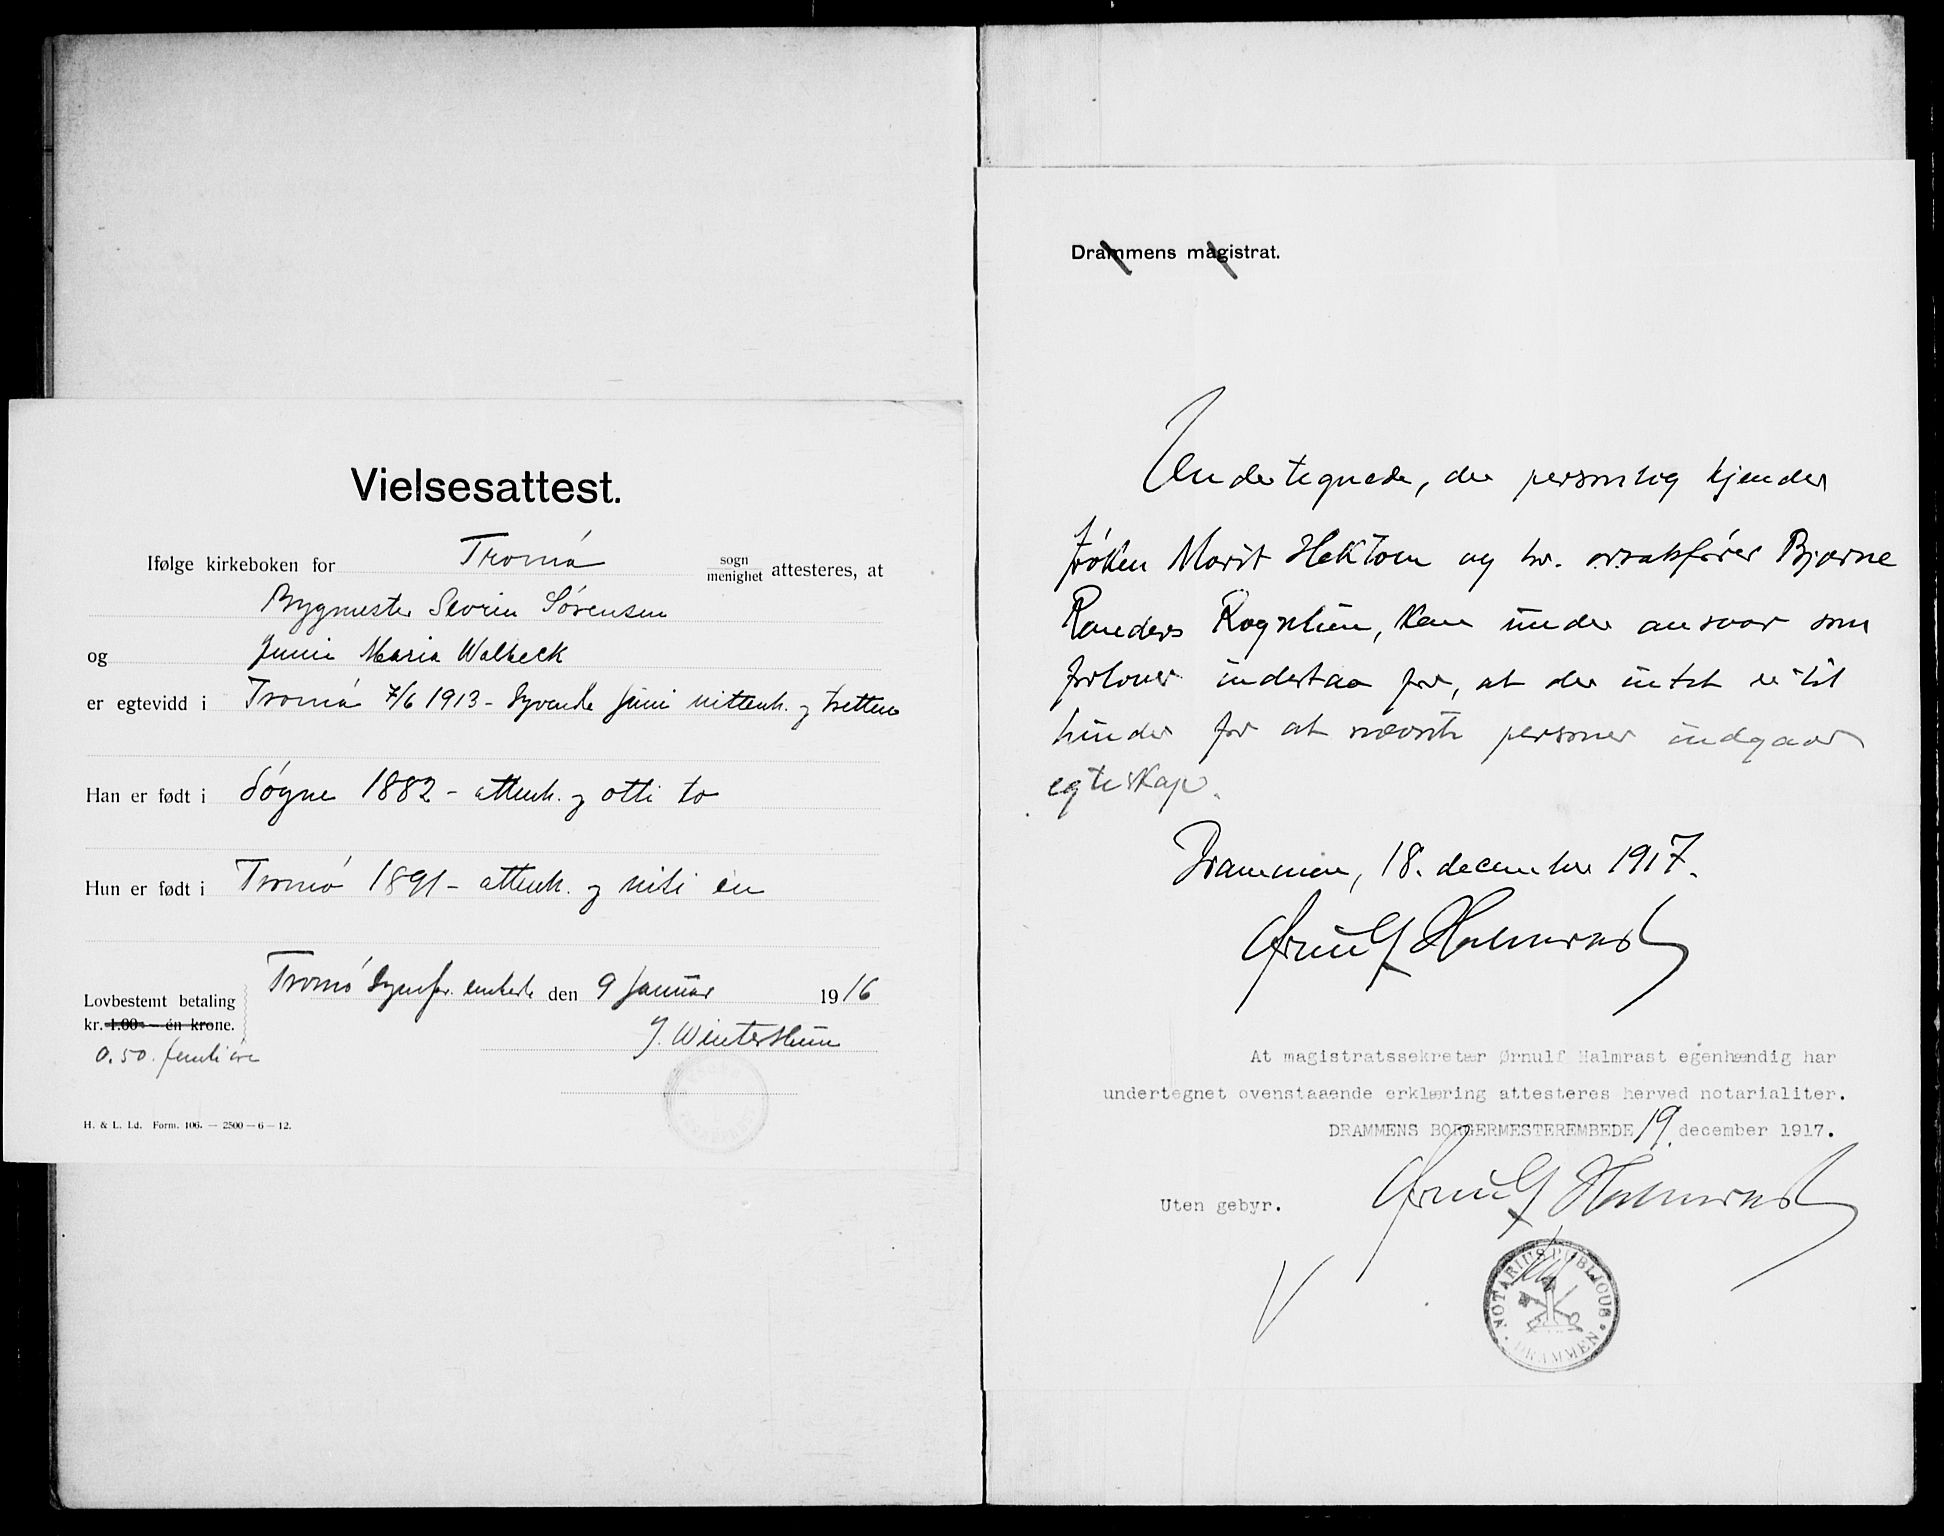 Vielsesattest.
Ifølge kirkeboken for Tromø sogn menighet attesteres, at
Bygmester Severin Sørensen
og Maria Walbeck
er egtevidd i Tromø 7/6 1913 - Syvende Juni nittenh. og tretten
Han er født i Søgne 1882 - attenh. og otti to
Hun er født i Tromø 1891 - attenh. og nitti en
Tromø Sognepr. embede den 9 Januar 1916
Lovbestemt betaling
kr. 1.00 — én krone.
0.50. femti øre
J. Winterhum
H. & L. Ld. Form. 106. — 2500 — 6 — 12.
Drammens magistrat.
Undertegnede, der personlig kjender
frøken Marit Hektoen og hr. orsakfører Bjarne
Randers Rognlien, kan under ansvar som
forlover indestaa for, at der intet er til
hinder for at nævnte personer indgaar
egteskap.
Drammen, 18. december 1917.
Ørnulf Halmrast
At magistratssekretær Ørnulf Halmrast egenhændig har
undertegnet ovenstaaende erklæring attesteres herved notarialiter.
DRAMMENS BORGERMESTEREMBEDE 19. december 1917.
Ørnulf Halmrast
Uten gebyr.
NOTARIUS PUBLICUS
DRAMMEN